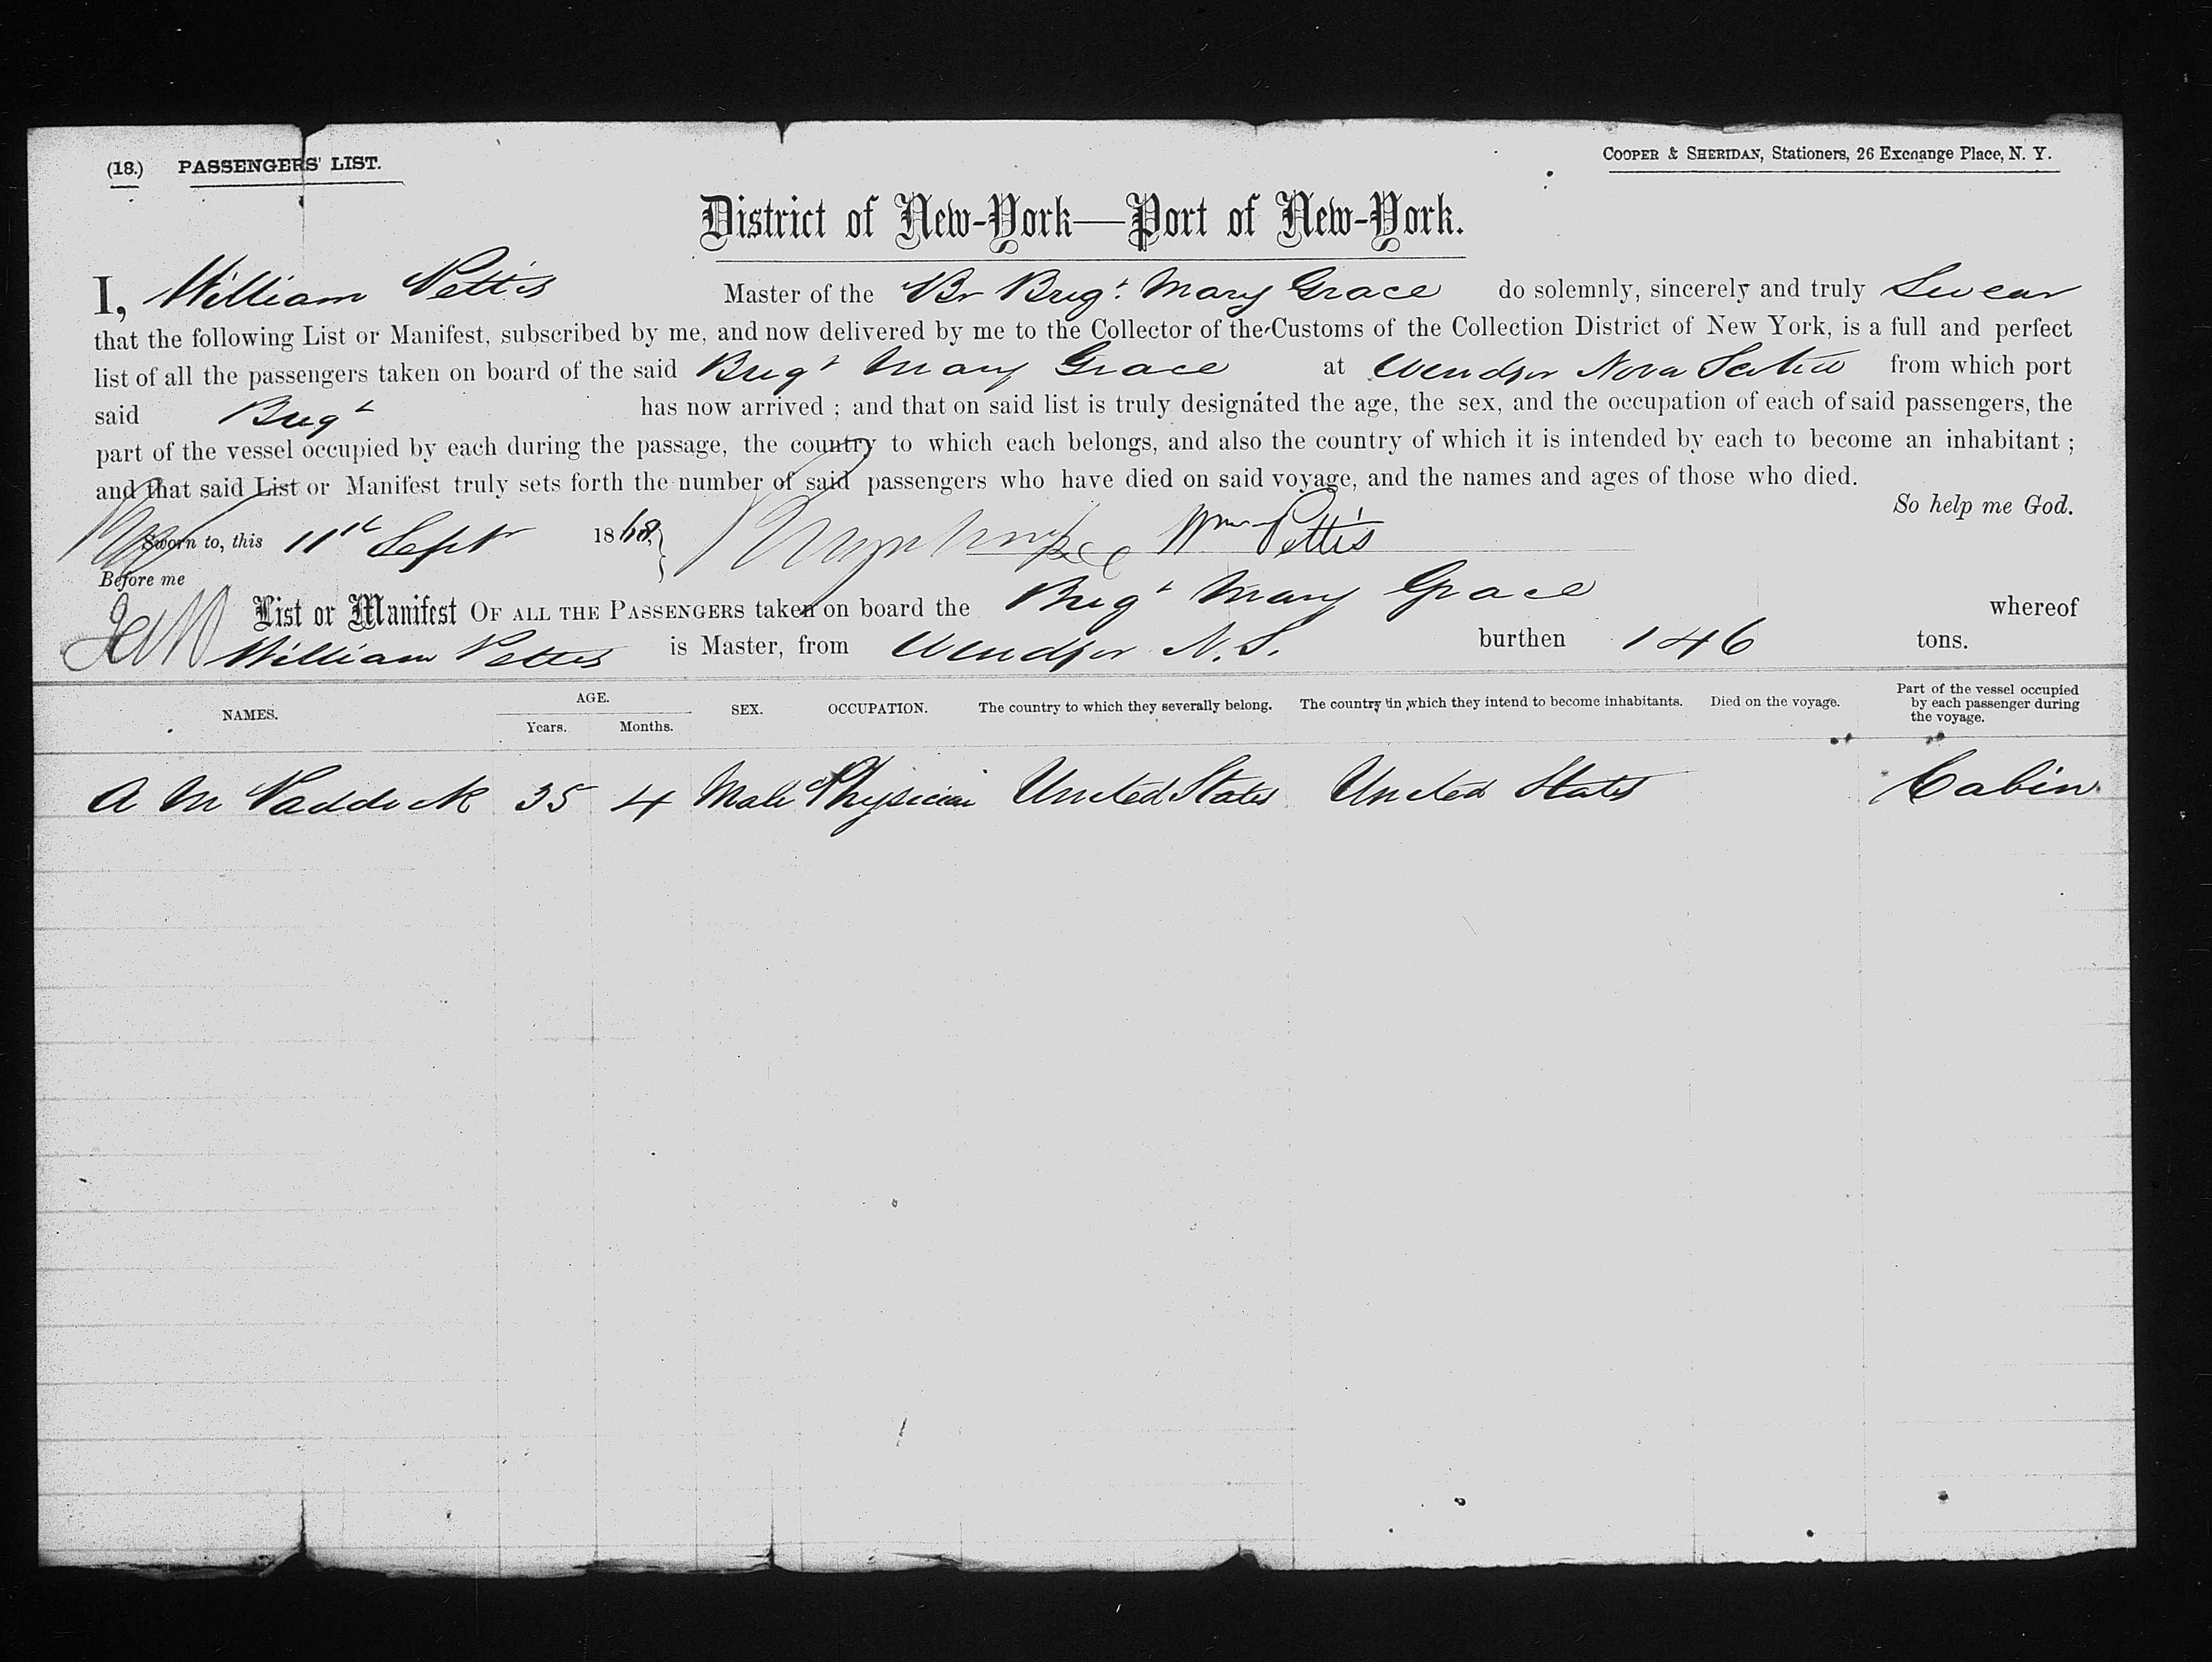 (18.) PASSENGERS' LIST.
COOPER & SHERIDAN, Stationers, 26 Exchange Place, N. Y.
District of New-York—Port of New-York.
I, William Pettis Master of the Br Brigt. Mary Grace do solemnly, sincerely and truly Swear
that the following List or Manifest, subscribed by me, and now delivered by me to the Collector of the Customs of the Collection District of New York, is a full and perfect
list of all the passengers taken on board of the said Brigt Mary Grace at Windsor Nova Scotia from which port
said Brigt has now arrived ; and that on said list is truly designated the age, the sex, and the occupation of each of said passengers, the
part of the vessel occupied by each during the passage, the country to which each belongs, and also the country of which it is intended by each to become an inhabitant ;
and that said List or Manifest truly sets forth the number of said passengers who have died on said voyage, and the names and ages of those who died.
So help me God.
Sworn to, this 11th Sept 1868, Wm Pettis
Before me
List or Manifest OF ALL THE PASSENGERS taken on board the Brigt Mary Grace whereof
William Pettis is Master, from Windsor N.S. burthen 146 tons.
NAMES. AGE. Years. Months. SEX. OCCUPATION. The country to which they severally belong. The country in which they intend to become inhabitants. Died on the voyage. Part of the vessel occupied by each passenger during the voyage.
A M Paddock 35 4 Male Physician United States United States Cabin